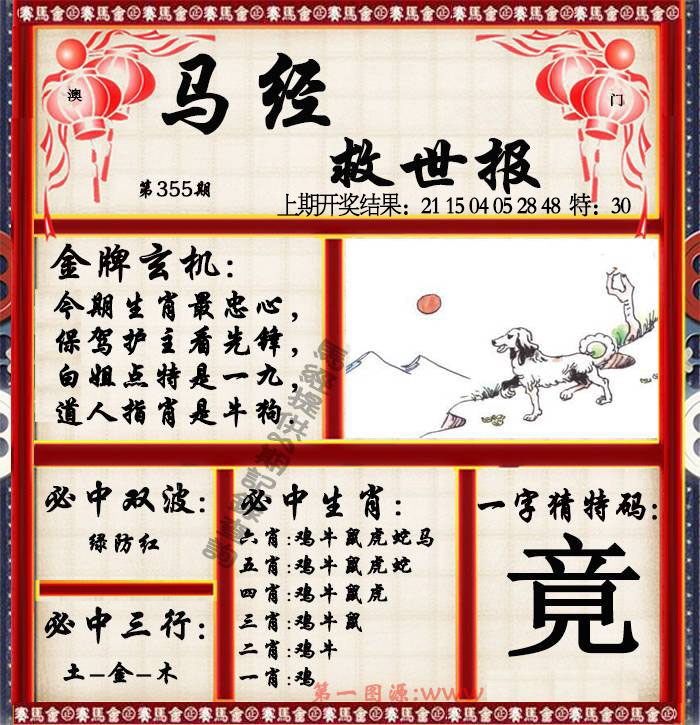 賽馬會正賽馬會正賽馬會正賽馬會正賽馬會正賽馬會
澳
门
马经
救世报
第355期
上期开奖结果：21 15 04 05 28 48 特：30
金牌玄机：
今期生肖最忠心，
保驾护主看先锋，
白姐点特是一九，
道人指肖是牛狗.
必中双波：
绿防红
必中三行：
土－金－木
必中生肖：
六肖:鸡牛鼠虎蛇马
五肖:鸡牛鼠虎蛇
四肖:鸡牛鼠虎
三肖:鸡牛鼠
二肖:鸡牛
一肖:鸡
一字猜特码：
竟
第一图源:www